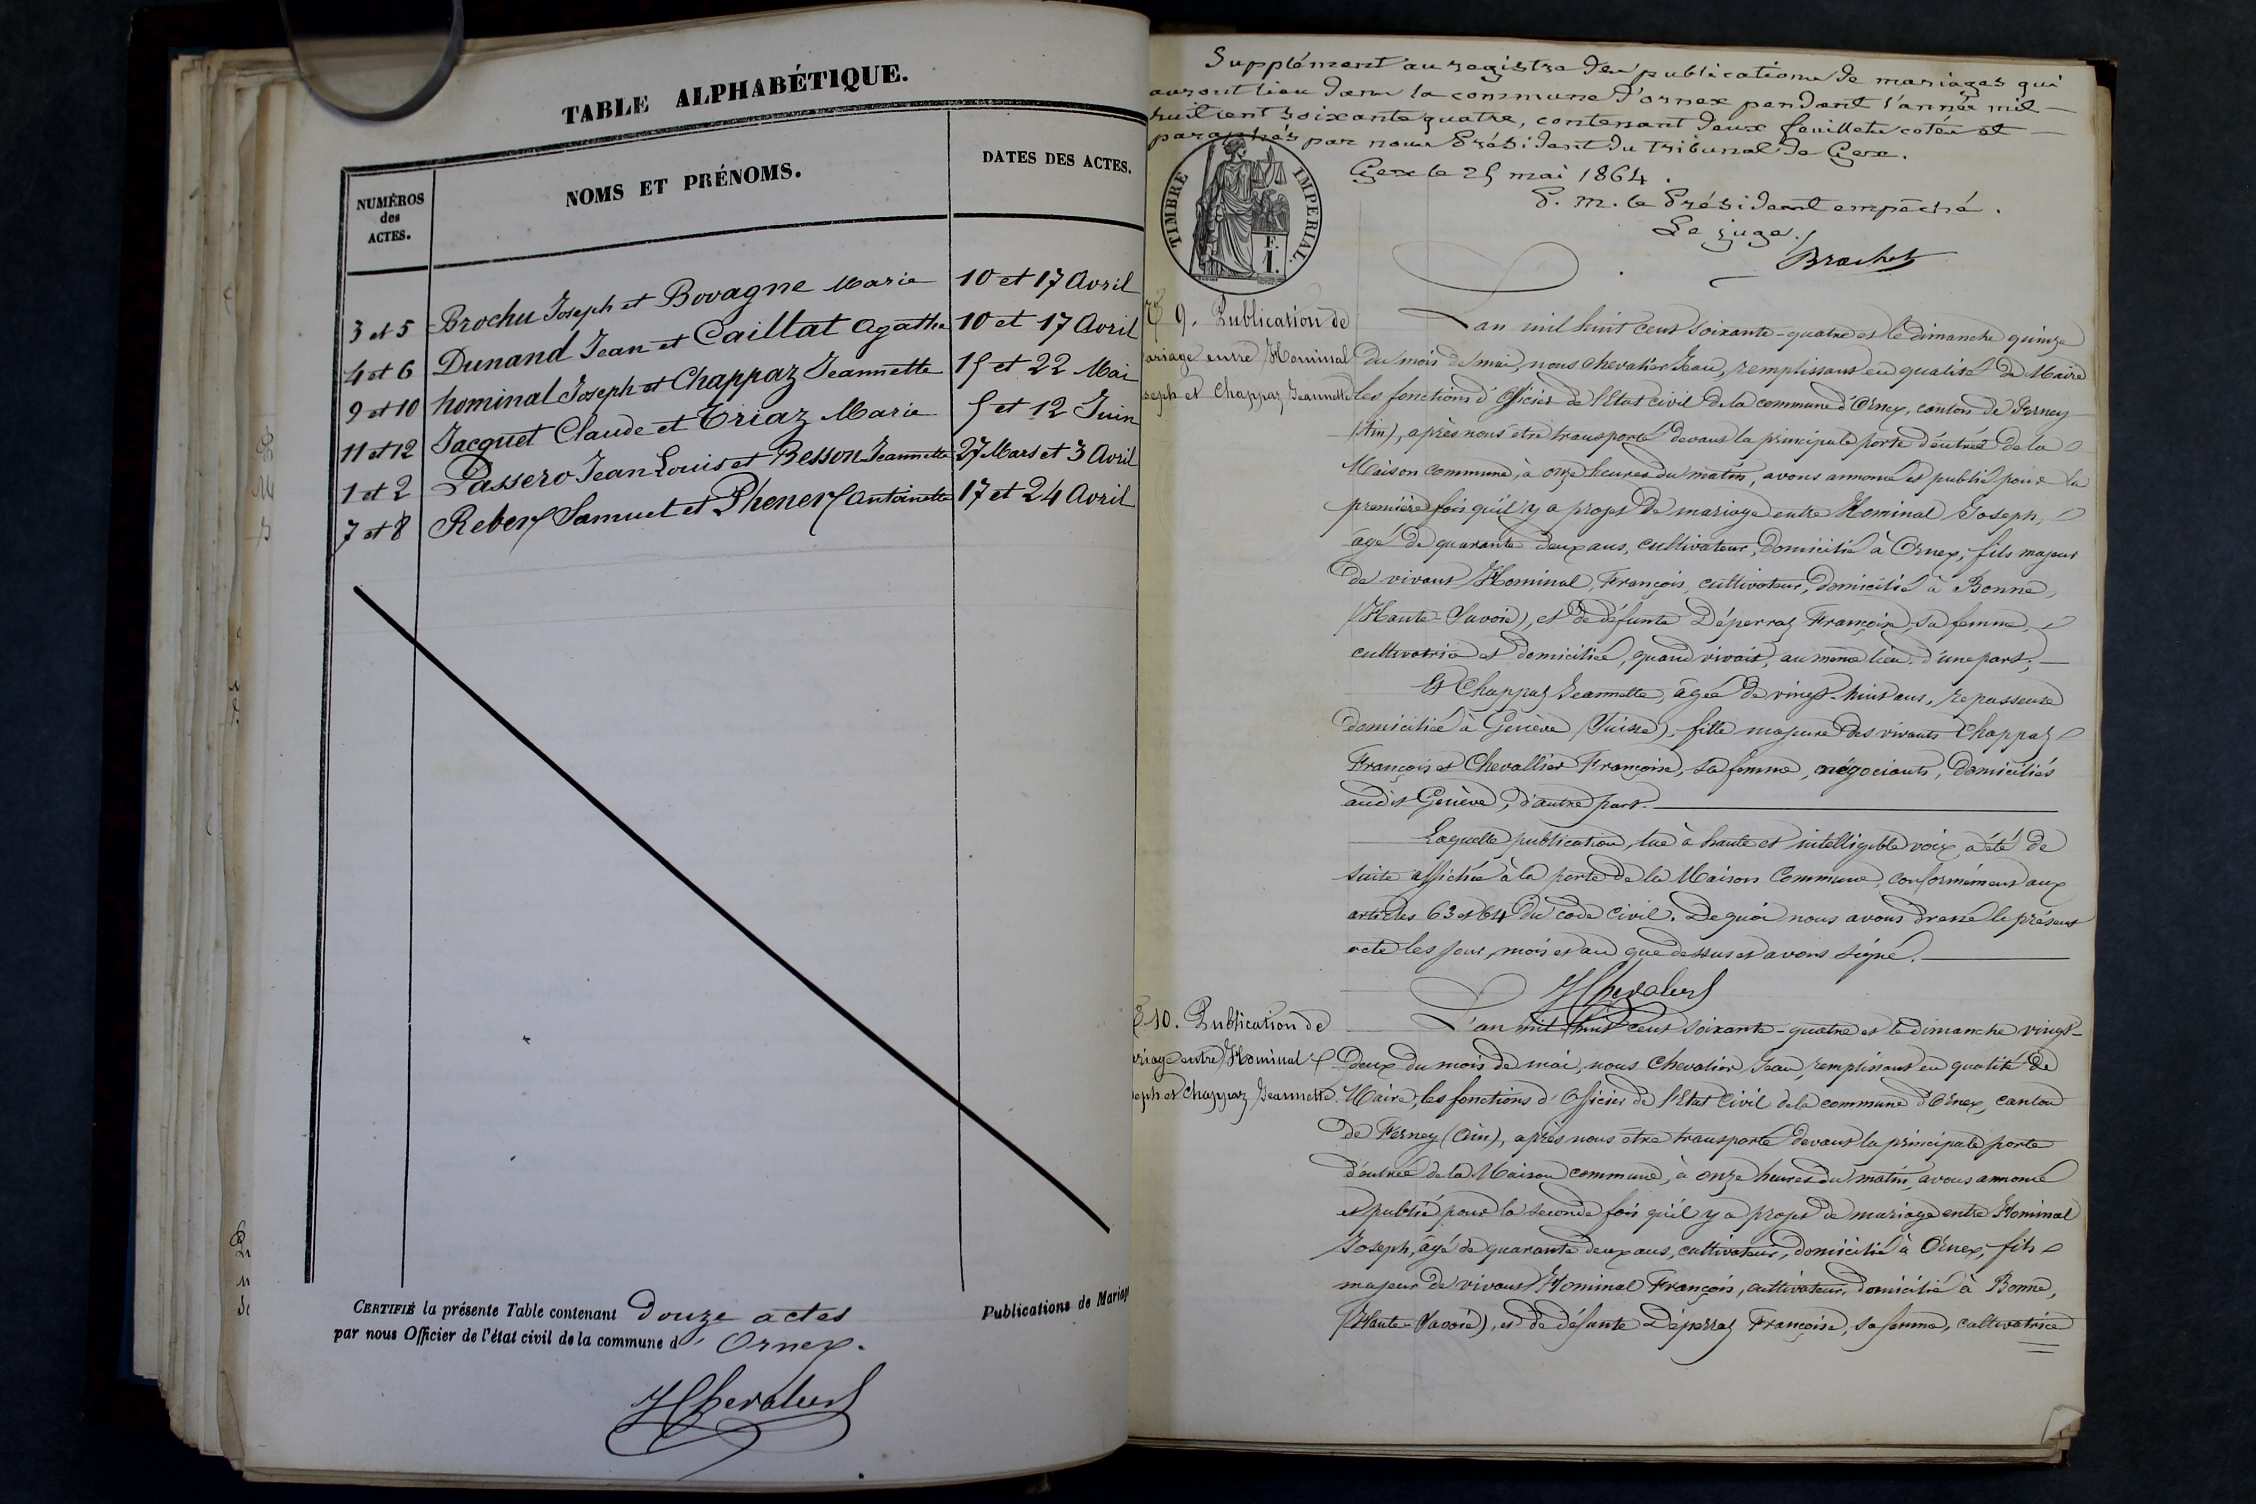 TABLE ALPHABÉTIQUE.
NUMÉROS
des
ACTES.
NOMS ET PRÉNOMS.
DATES DES ACTES.
3 et 5 Brochu Joseph et Bovagne Marie 10 et 17 Avril
4 et 6 Dunand Jean et Caillat Agathe 10 et 17 Avril
9 et 10 hominal Joseph et Chappaz Jeannette 15 et 22 Mai
11 et 12 Jacquet Claude et Triaz Marie 5 et 12 Juin
1 et 2 Passero Jean Louis et Besson Jeannette 27 Mars et 3 Avril
7 et 8 Reber Samuel et Phener Antoinette 17 et 24 Avril
CERTIFIÉ la présente Table contenant douze actes
Publications de Mariage
par nous Officier de l'état civil de la commune d' Ornex.
JChevalier
Supplément au registre des publications de mariages qui
auront lieu dans la commune d'ornex pendant l'année mil
huit cent soixante quatre, contenant deux feuillets cotés et
paraphés par nous Président du tribunal de Gex.
Gex le 25 mai 1864.
P. m. le Président empêché.
Le juge.
Brochet
TIMBRE IMPERIAL.
F.
1.
9. Publication de
ariage entre Hominal
seph et Chappaz Jeannette
L'an mil huit cent soixante-quatre et le dimanche quinze
du mois de mai, nous Chevalier Jean, remplissant en qualité de Maire
les fonctions d'Officier de l'Etat civil de la commune d'Ornex, canton de Ferney
(Ain), après nous être transporté devant la principale porte d'entrée de la
Maison commune, à onze heures du matin, avons annoncé et publié pour la
première fois qu'il y a projet de mariage entre Hominal Joseph,
âgé de quarante deux ans, cultivateur, domicilié à Ornex, fils majeur
de vivant Hominal François, cultivateur, domicilié à Bonne,
(Haute-Savoie), et de défunte Déperraz Françoise, sa femme,
cultivatrice et domiciliée, quand vivait, au même lieu, d'une part;
Et Chappaz Jeannette, âgée de vingt-huit ans, repasseuse
domiciliée à Genève (Suisse), fille majeure des vivants Chappaz
François et Chevallier Françoise, sa femme, négociants, domiciliés
audit Genève, d'autre part.
Laquelle publication, lue à haute et intelligible voix, a été de
suite affichée à la porte de la Maison Commune, conformément aux
articles 63 et 64 du code civil. De quoi nous avons dressé le présent
acte les jour, mois et an que dessus et avons signé.
JChevalier
10. Publication de
riage entre Hominal
eph et Chappaz Jeannette.
L'an mil huit cent soixante-quatre et le dimanche vingt-
deux du mois de mai, nous Chevalier Jean, remplissant en qualité de
Maire, les fonctions d'Officier de l'Etat Civil de la commune d'Ornex, canton
de Ferney (Ain), après nous être transporté devant la principale porte
d'entrée de la Maison commune, à onze heures du matin, avons annoncé
et publié pour la seconde fois qu'il y a projet de mariage entre Hominal
Joseph, âgé de quarante deux ans, cultivateur, domicilié à Ornex, fils
majeur de vivant Hominal François, cultivateur, domicilié à Bonne,
(Haute-Savoie), et de défunte Déperraz Françoise, sa femme, cultivatrice